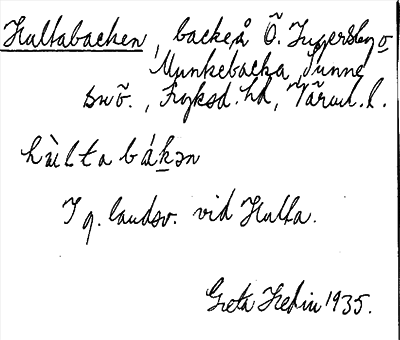 Hultabacken, backe på Ö. Ingersby o
Munkebacka, Sunne
snö., Fryksd. hd, Värml. l.
hu̇̀lta bákən
I g. landsv. vid Hulta.
Greta Hedin 1935.